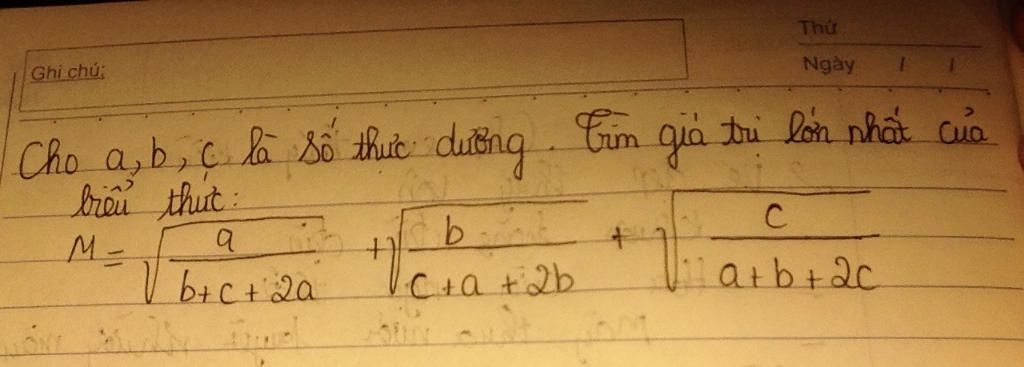 Thứ
Ghi chú:
Ngày / /
Cho a, b, c là số thực dương. Tìm giá trị lớn nhất của
biểu thức:
M = √(a/(b+c+2a)) + √(b/(c+a+2b)) + √(c/(a+b+2c))